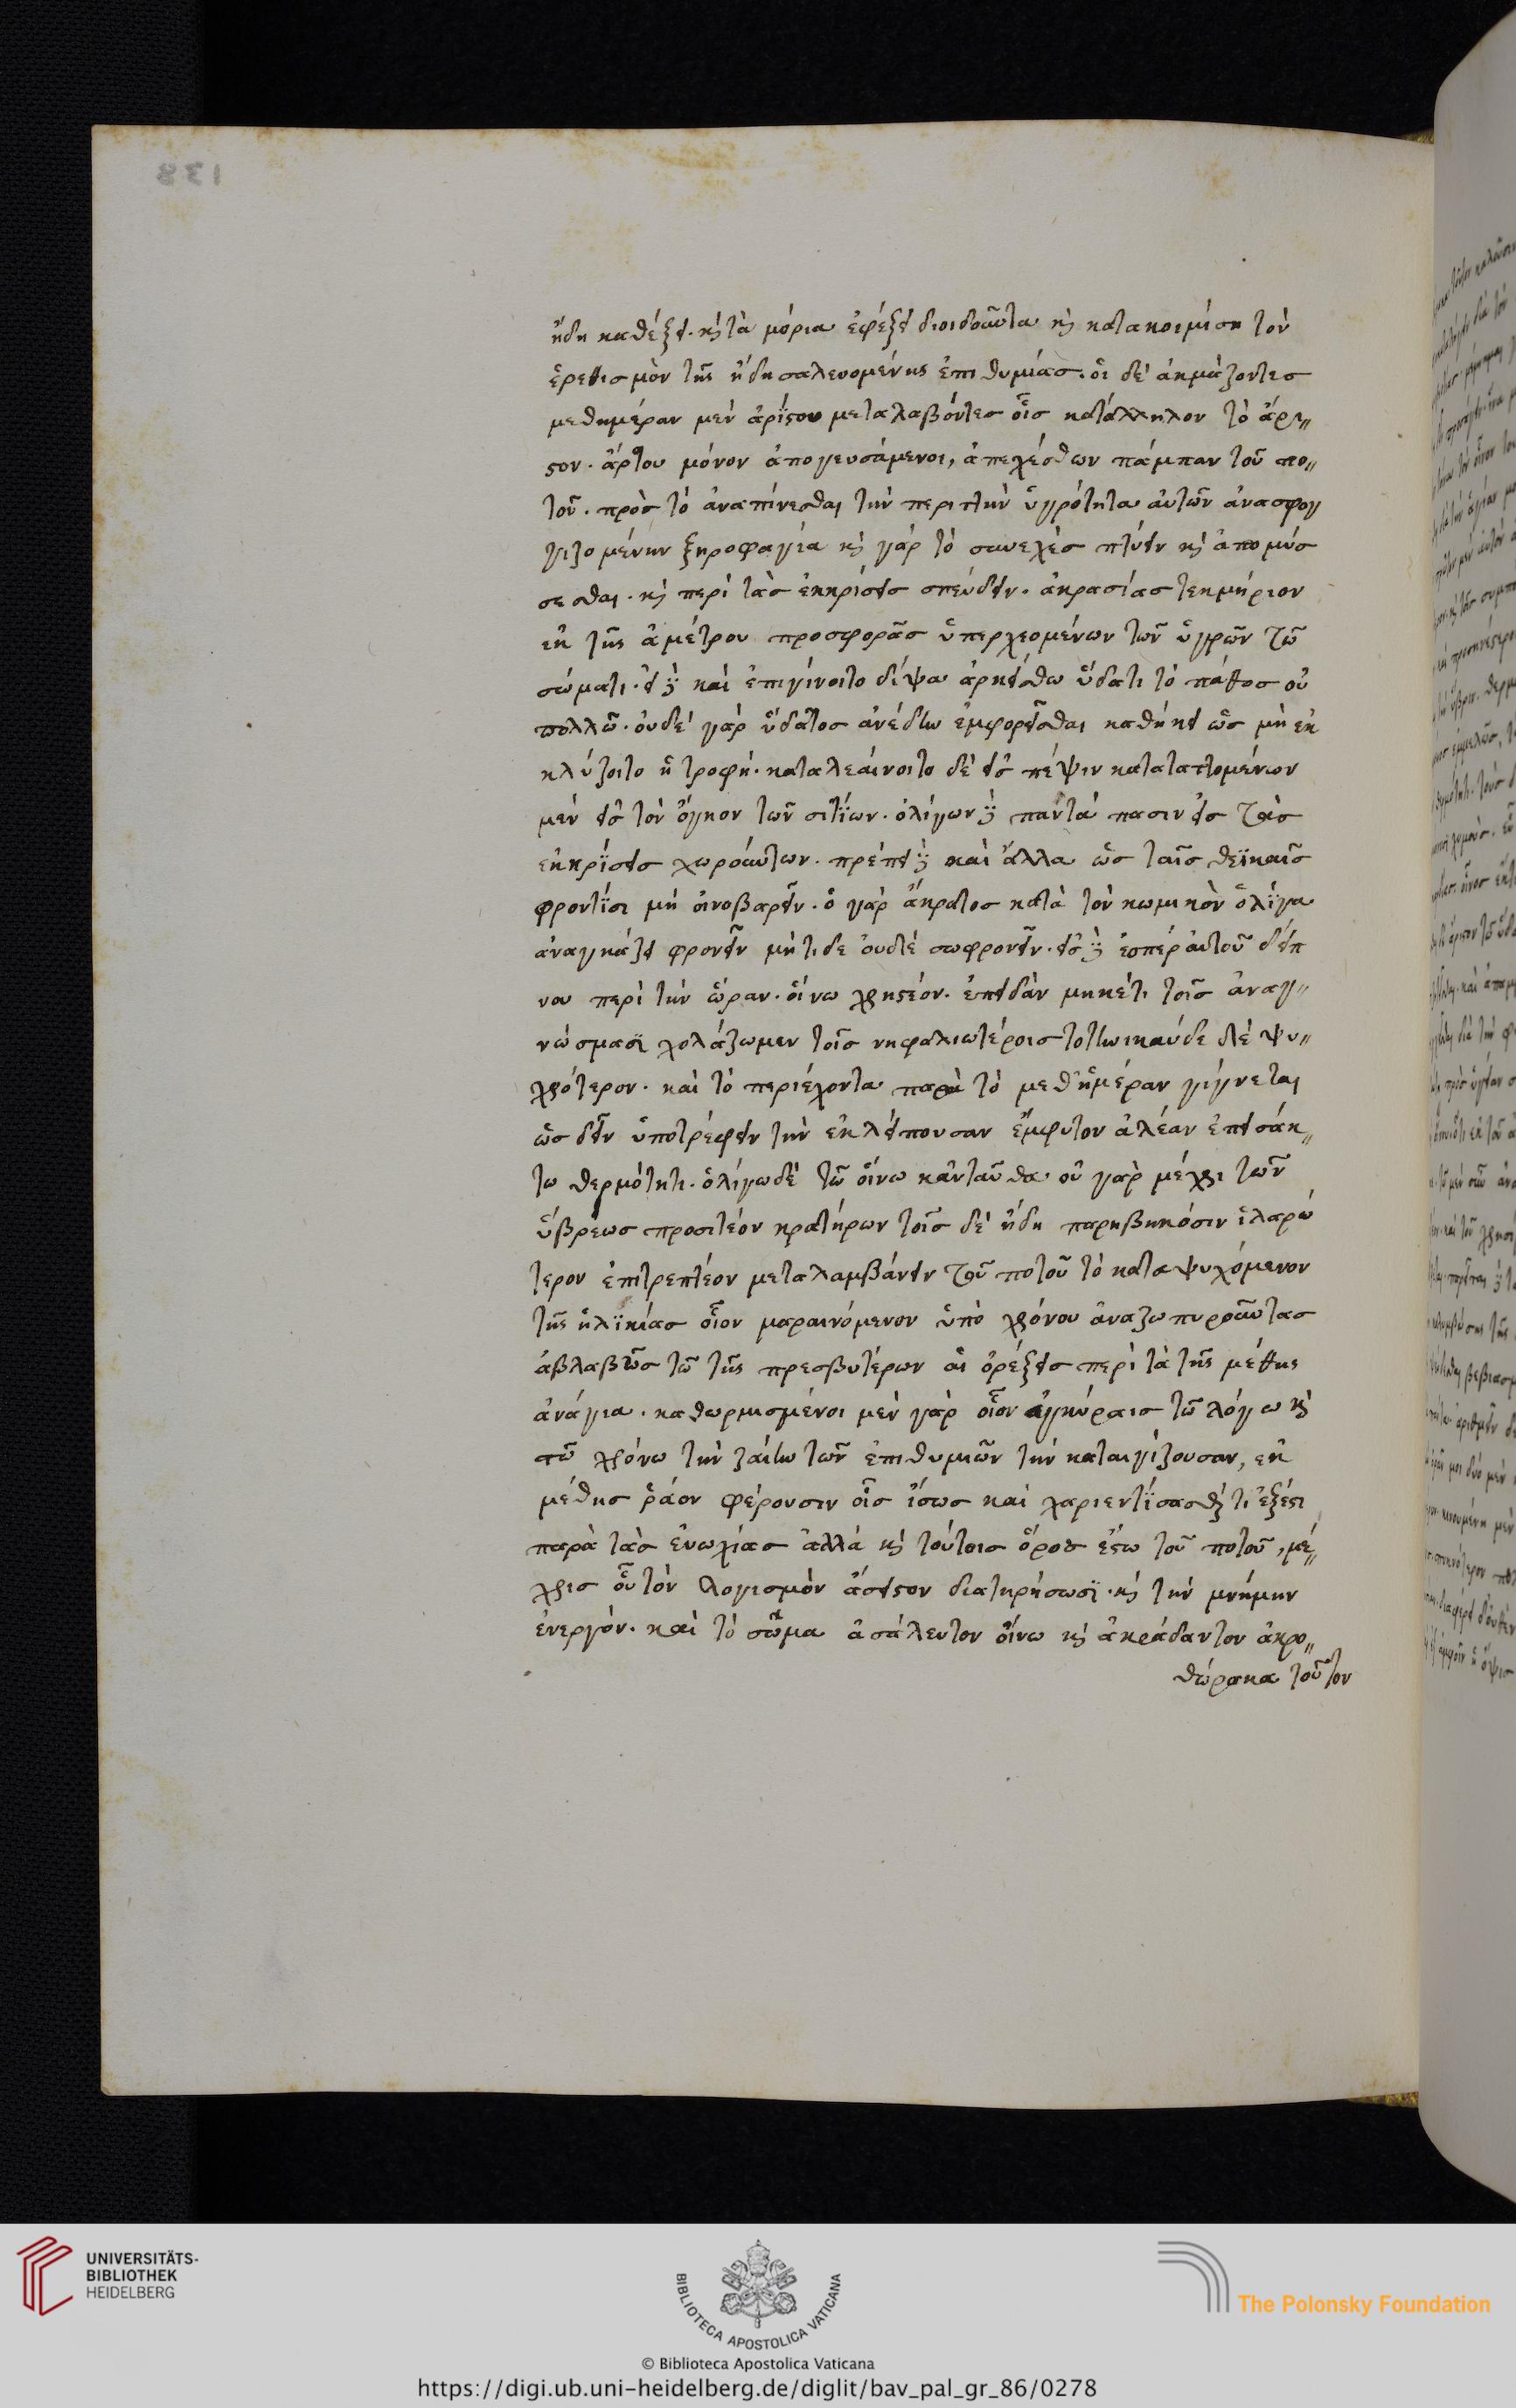 138
ἤδη καθέξει. καὶ τὰ μόρια ἐφέξει διοιδοῦντα καὶ κατακοιμίση τὸν
ἐρεθισμὸν τῆς ἤδη σαλευομένης ἐπιθυμίας. οἱ δὲ ἀκμάζοντες
μεθημέραν μὲν ἀρίστου μεταλαβόντες οἷς κατάλληλον τὸ ἄρι〃
στον. ἄρτου μόνον ἀπογευσάμενοι, ἀπεχέσθων πάμπαν τοῦ πο〃
τοῦ. πρὸς τὸ ἀναπίνεσθαι τὴν περιττὴν ὑγρότητα αὐτῶν ἀνασπογ
γιζομένην ξηροφαγία καὶ γὰρ τὸ συνεχὲς πτύειν καὶ ἀπομύσ
σεσθαι. καὶ περὶ τὰς ἐκκρίσεις σπεύδειν. ἀκρασίας τεκμήριον
ἐκ τῆς ἀμέτρου προσφορᾶς ὑπερχεομένων τῶν ὑγρῶν τῷ
σώματι. εἰ δὲ καὶ ἐπιγίνοιτο δίψα ἀρκείσθω ὕδατι τὸ πάθος οὐ
πολλῷ. οὐδὲ γὰρ ὕδατος ἀνέδην ἐμφορεῖσθαι καθήκει ὡς μὴ ἐκ
κλύζοιτο ἡ τροφή. καταλεαίνοιτο δὲ εἰς πέψιν κατατατομένων
μὲν εἰς τὸν ὄγκον τῶν σιτίων. ὀλίγων δὲ παντάπασιν εἰς τὰς
ἐκκρίσεις χωρούντων. πρέπει δὲ καὶ ἄλλα ὡς ταῖς θεϊκαῖς
φροντίσι μὴ οἰνοβαρεῖν. ὁ γὰρ ἄκρατος κατὰ τὸν κωμικὸν ὀλίγα
ἀναγκάζει φρονεῖν μήτιδε οὐδὲ σωφρονεῖν. εἰς δὲ ἑσπέραν τοῦ δείπ
νου περὶ τὴν ὥραν. οἴνω χρηστέον. ἐπειδὰν μηκέτι τοῖς ἀναγ〃
νώσμασϊ χολάζωμεν τοῖς νηφαλιωτέροις τοτηνικαύδε δὲ ψυ〃
χρότερον. καὶ τὸ περιέχοντα παρὰ τὸ μεθἡμέραν γίγνεται
ὡς δεῖν ὑποτρέφειν τὴν ἐκλείπουσαν ἔμφυτον ἀλέαν ἐπεισάκ〃
τω θερμότητι. ὀλίγωδὲ τῷ οἴνω κἀνταῦθα οὐ γὰρ μέχρι τῶν
ὕβρεως προσιτέον κρατήρων τοῖς δὲ ἤδη παρηβηκόσιν ἱλαρώ
τερον ἐπιτρεπτέον μεταλαμβάνειν τοῦ ποτοῦ τὸ καταψυχόμενον
τῆς ἡλϊκίας οἷον μαραινόμενον ὑπὸ χρόνου ἀναζωπυροῦντας
ἀβλαβῶς τῷ τῆς πρεσβυτέρων αἱ ὀρέξεις περὶ τὰ τῆς μέθης
ἀνάγια. καθωρμισμένοι μὲν γὰρ οἷον ἀγκύραις τῷ λόγω καὶ
τῷ χρόνω τὴν ζάλην τῶν ἐπιθυμιῶν τὴν καταιγίζουσαν, ἐκ
μέθης ῥᾶον φέρουσιν οἷς ἴσως καὶ χαριεντίσασθαί τι ἐξέστι
παρὰ τὰς εὐωχίας ἀλλὰ καὶ τούτοις ὅρος ἔστω τοῦ ποτοῦ, μέ〃
χρις οὗ τὸν λογισμὸν ἄσειστον διατηρήσωσϊ. καὶ τὴν μνήμην
ἐνεργόν. καὶ τὸ σῶμα ἀσάλευτον οἴνω καὶ ἀκράδαντον ἀκρο〃
θώρακα τοῦτον
UNIVERSITÄTS-
BIBLIOTHEK
HEIDELBERG
BIBLIOTECA APOSTOLICA VATICANA
The Polonsky Foundation
© Biblioteca Apostolica Vaticana
https://digi.ub.uni-heidelberg.de/diglit/bav_pal_gr_86/0278